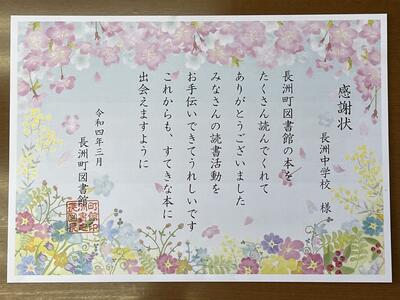 感謝状
長洲中学校 様
長洲町図書館の本を
たくさん読んでくれて
ありがとうございました
みなさんの読書活動を
お手伝いできてうれしいです
これからも、すてきな本に
出会えますように
令和四年三月
長洲町図書館